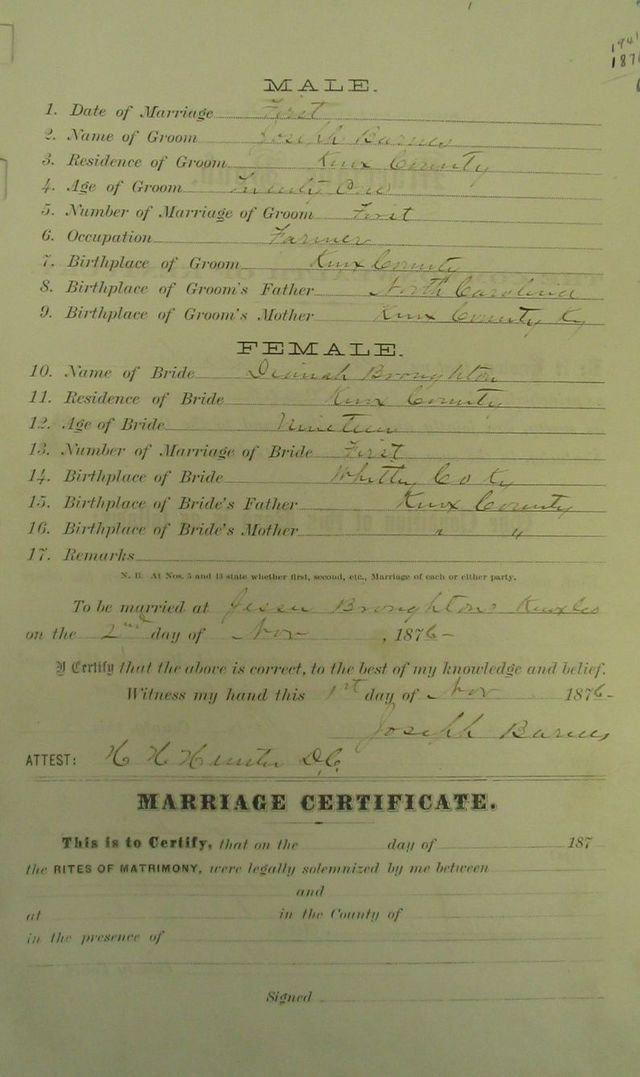 1876
MALE.
1. Date of Marriage First
2. Name of Groom Joseph Barnes
3. Residence of Groom Knox County
4. Age of Groom Twenty One
5. Number of Marriage of Groom First
6. Occupation Farmer
7. Birthplace of Groom Knox County
8. Birthplace of Groom's Father North Carolina
9. Birthplace of Groom's Mother Knox County Ky
FEMALE.
10. Name of Bride Broughton
11. Residence of Bride Knox County
12. Age of Bride Nineteen
13. Number of Marriage of Bride First
14. Birthplace of Bride Whitley Co Ky
15. Birthplace of Bride's Father Knox County
16. Birthplace of Bride's Mother " "
17. Remarks
N. B. At Nos. 5 and 13 state whether first, second, etc., Marriage of each or either party.
To be married at Jesse Broughtons Knox Co
on the 2nd day of Nov , 1876-
I Certify that the above is correct, to the best of my knowledge and belief.
Witness my hand this 1st day of Nov 1876-
Joseph Barnes
ATTEST: H H Hunter D.C.
MARRIAGE CERTIFICATE.
This is to Certify, that on the day of 187
the RITES OF MATRIMONY, were legally solemnized by me between
and
at in the County of
in the presence of
Signed